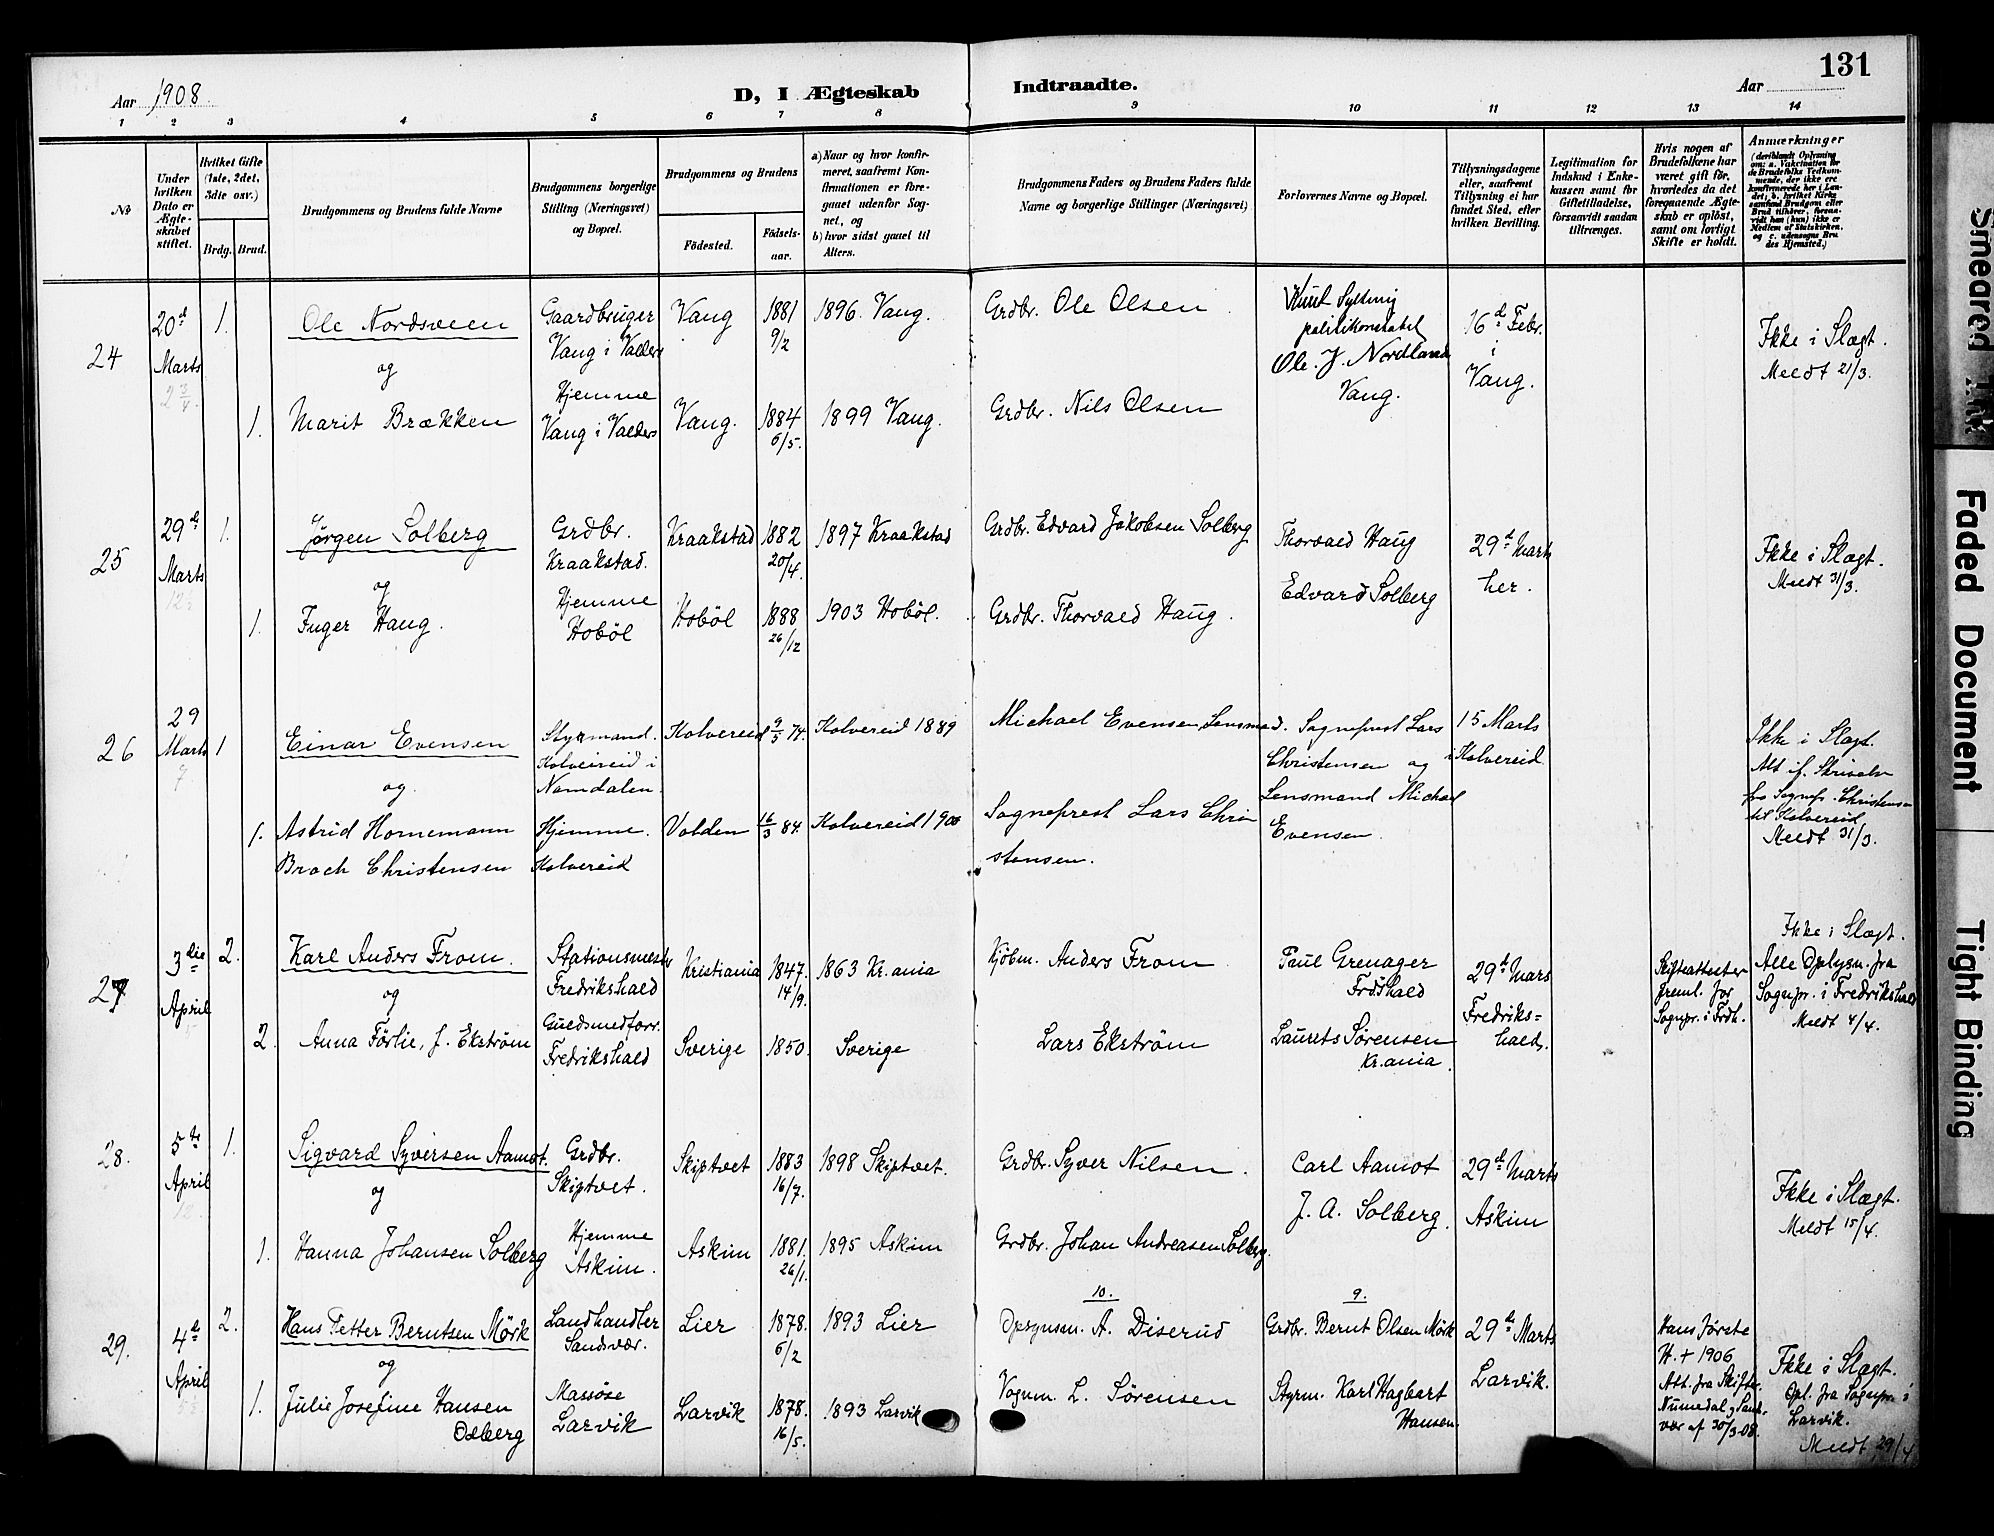 131
Aar 1908
D, I Ægteskab Indtraadte.
Aar
1 2 3 4 5 6 7 8 9 10 11 12 13 14
No
Under hvilken Dato er Ægteskabet stiftet.
Hvilket Gifte (1ste, 2det, 3die osv.)
Brdg. Brud.
Brudgommens og Brudens fulde Navne
Brudgommens borgerlige Stilling (Næringsvei) og Bopæl.
Brudgommens og Brudens
Fødested. Fødselsaar.
a) Naar og hvor konfirmeret, saafremt Konfirmationen er foregaaet udenfor Sognet, og
b) hvor sidst gaaet til Alters.
Brudgommens Faders og Brudens Faders fulde Navne og borgerlige Stillinger (Næringsvei)
Forlovernes Navne og Bopæl.
Tillysningsdagene eller, saafremt Tillysning ei har fundet Sted, efter hvilken Bevilling.
Legitimation for Indskud i Enkekassen samt for Giftetilladelse, forsaavidt saadan tiltrænges.
Hvis nogen af Brudefolkene har været gift før, hvorledes da det foregaaende Ægteskab er opløst, samt om lovligt Skifte er holdt.
Anmærkninger
24
20de Marts
1. Ole Nordsveen
Gaardbruger Vang i Valders
Vang 1881 9/2
1896. Vang.
Grdbr. Ole Olsen
politikonstabel
Ole. J. Nordland Vang.
16d Febr. i Vang.
Ikke i Slægt.
Meldt 21/3.
og
1. Marit Brækken
Hjemme Vang i Valders
Vang. 1884 6/5.
1899 Vang.
Grdbr. Nils Olsen
25
29d Marts
1. Jørgen Solberg
Grdbr. Kraakstad.
Kraakstad 1882 20/4.
1897 Kraakstad
Grdbr. Edvard Jakobsen Solberg
Thorvald Haug
Edvard Solberg
29d Marts her.
Ikke i Slægt.
Meldt 31/3.
og
1. Inger Haug.
Hjemme Hobøl
Hobøl 1888 26/12
1903 Hobøl.
Grdbr. Thorvald Haug.
26
29 Marts
1 Einar Evensen
Styrmand. Kolvereid i Namdalen.
Kolvereid 9/5 74.
Kolvereid 1889
Michael Evensen Lensmand.
Sogneprest Lars Christensen og Lensmand Michael Evensen.
15 Marts i Kolvereid
Ikke i Slægt.
Alt if. Skrivelse fra Sognepr. Christensen til Kolvereid
Meldt 31/3.
og
1. Astrid Hornemann Brach Christensen
Hjemme. Kolvereid
Volden 16/3 84.
Kolvereid 1900
Sogneprest Lars Christensen.
27
3die April
2. Karl Anders From.
Stationsmester Fredrikshald
Kristiania 1847. 14/9.
1863 Kr.ania
Kjøbm. Anders From
Paul Grenager Frdshald
Laurets Sørensen Kr.ania
29d Mars Fredrikshald.
Skifteattester freml. for Sognepr. i Frdh.
Ikke i Slægt.
Alle Oplysn. fra Sognpr. i Fredrikshald
Meldt 4/4.
og
2. Anna Förlie, f. Ekström
Guldsmedforr. Fredrikshald
Sverige 1850.
Sverige
Lars Ekström
28.
5te April
1. Sigvard Syversen Aamot.
Grdbr. Skiptvet.
Skiptvet 1883 16/7.
1898 Skiptvet.
Grdbr. Syver Nilsen.
Carl Aamot
J. A. Solberg.
29d Marts Askim
Ikke i Slægt.
Meldt 15/4.
og
1. Hanna Johansen Solberg
Hjemme Askim.
Askim 1881. 26/1.
1895 Askim
Grdbr. Johan Andreasen Solberg.
29.
4d April
2. Hans Petter Berntsen Mörk
Landhandler Sandsvær.
Lier 1878. 6/2
1893 Lier
10.
Opsynsm. A. Diserud
9.
Grdbr. Bernt Olsen Mörk
29d Marts Larvik.
Hans første H. + 1906
Att. fra Skifte. Numedal & Sandsvær af 30/3 08.
Ikke i Slægt.
Opl. fra Sognpr. i Larvik.
Meldt 29/4
og
1. Julie Josefine Hansen Odberg
Massøse Larvik
Larvik 1878. 16/5.
1893 Larvik
Vognm. L. Sørensen
Styrm. Karl Hagbart Hansen.
Smeared Ink
Faded Document
Tight Binding